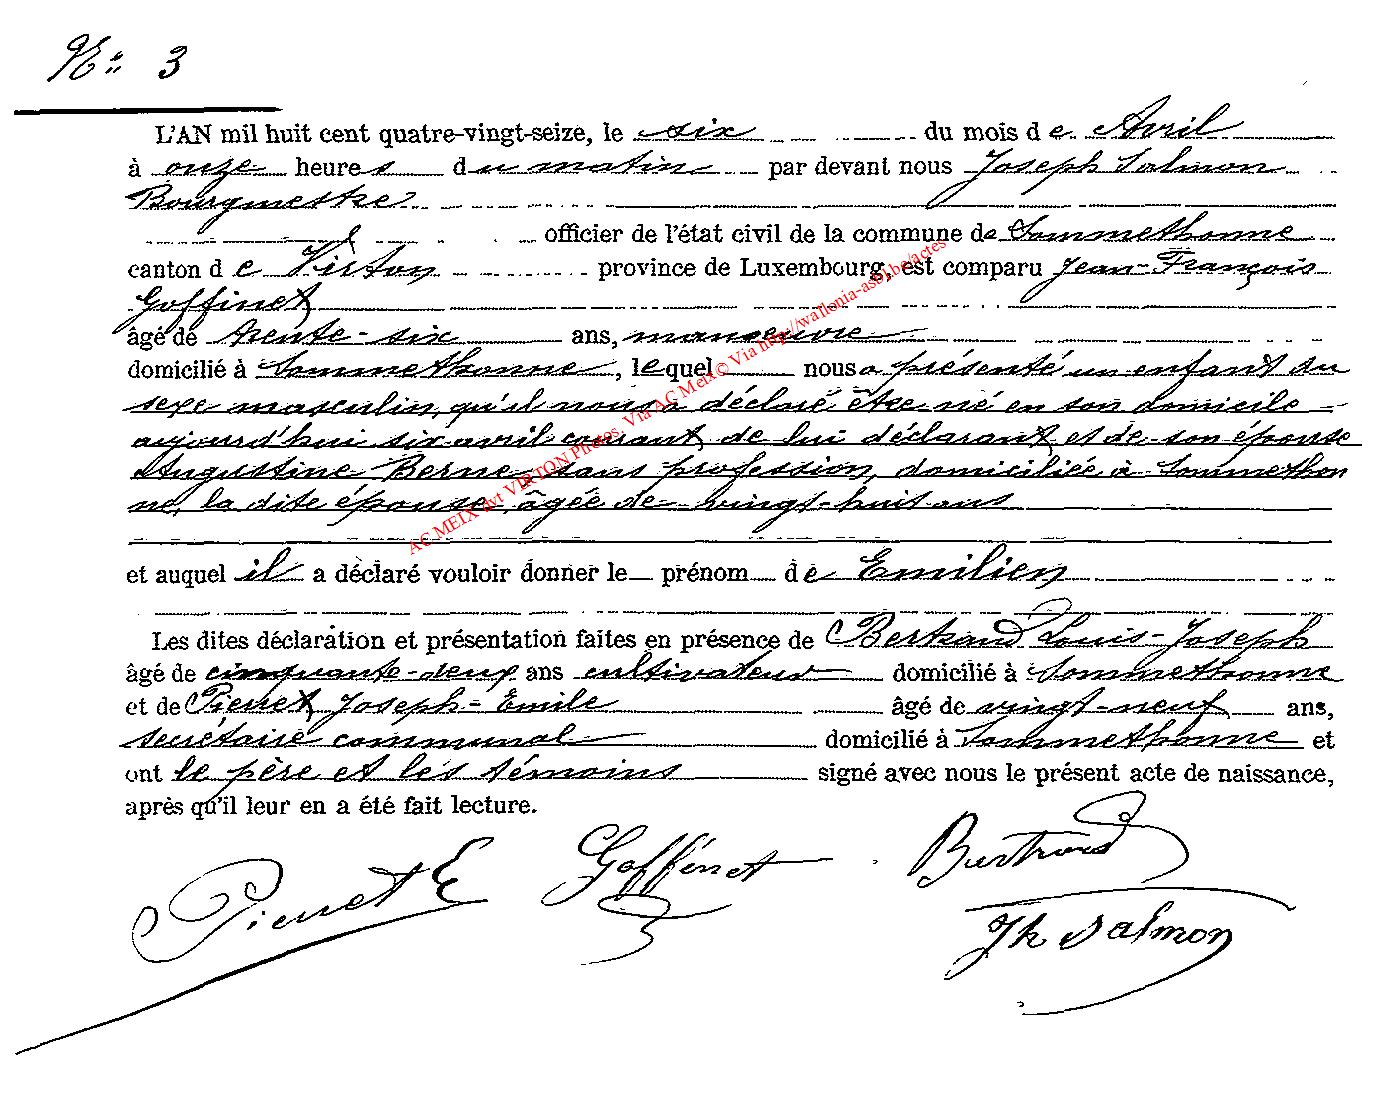 Nº 3
L'AN mil huit cent quatre-vingt-seize, le six du mois de Avril
à onze heures du matin par devant nous Joseph Salmon
Bourgmestre
officier de l'état civil de la commune de Sommethonne
canton de Virton province de Luxembourg, est comparu Jean-François
Goffinet
âgé de trente-six ans, manoeuvre
domicilié à Sommethonne, lequel nous a présenté un enfant du
sexe masculin, qu'il nous a déclaré être né en son domicile
aujourd'hui six avril courant, de lui déclarant et de son épouse
Augustine Berne, sans profession, domiciliée à Sommethon
ne, la dite épouse âgée de vingt-huit ans
et auquel il a déclaré vouloir donner le prénom de Emilien
Les dites déclaration et présentation faites en présence de Bertrand Louis-Joseph
âgé de cinquante-deux ans cultivateur domicilié à Sommethonne
et de Pierret Joseph-Emile âgé de vingt-neuf ans,
secrétaire communal domicilié à Sommethonne et
ont le père et les témoins signé avec nous le présent acte de naissance,
après qu'il leur en a été fait lecture.
Pierret E Goffinet Bertrand
Jh Salmon
AC MEIX dvt VIRTON Photos. Via AC Meix © Via http://wallonia-asbl.be/actes